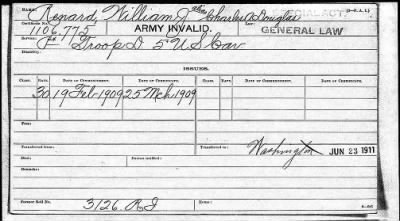 Name: Renard, William J alias Charles W Douglas (3-521.)
Certificate No. 1106.775 ARMY INVALID. GENERAL LAW
Service: Pvt Troop D 5" US Cav
ISSUES.
Class. Rate. Date of Commencement. Date of Certificate. Class. Rate. Date of Commencement. Date of Certificate.
30 19 Feb-1909 25 Mch-1909
From
Transferred from: Transferred to: Washington JUN 23 1911
Died: Bureau notified:
Remarks:
Former Roll No. 3126. RI